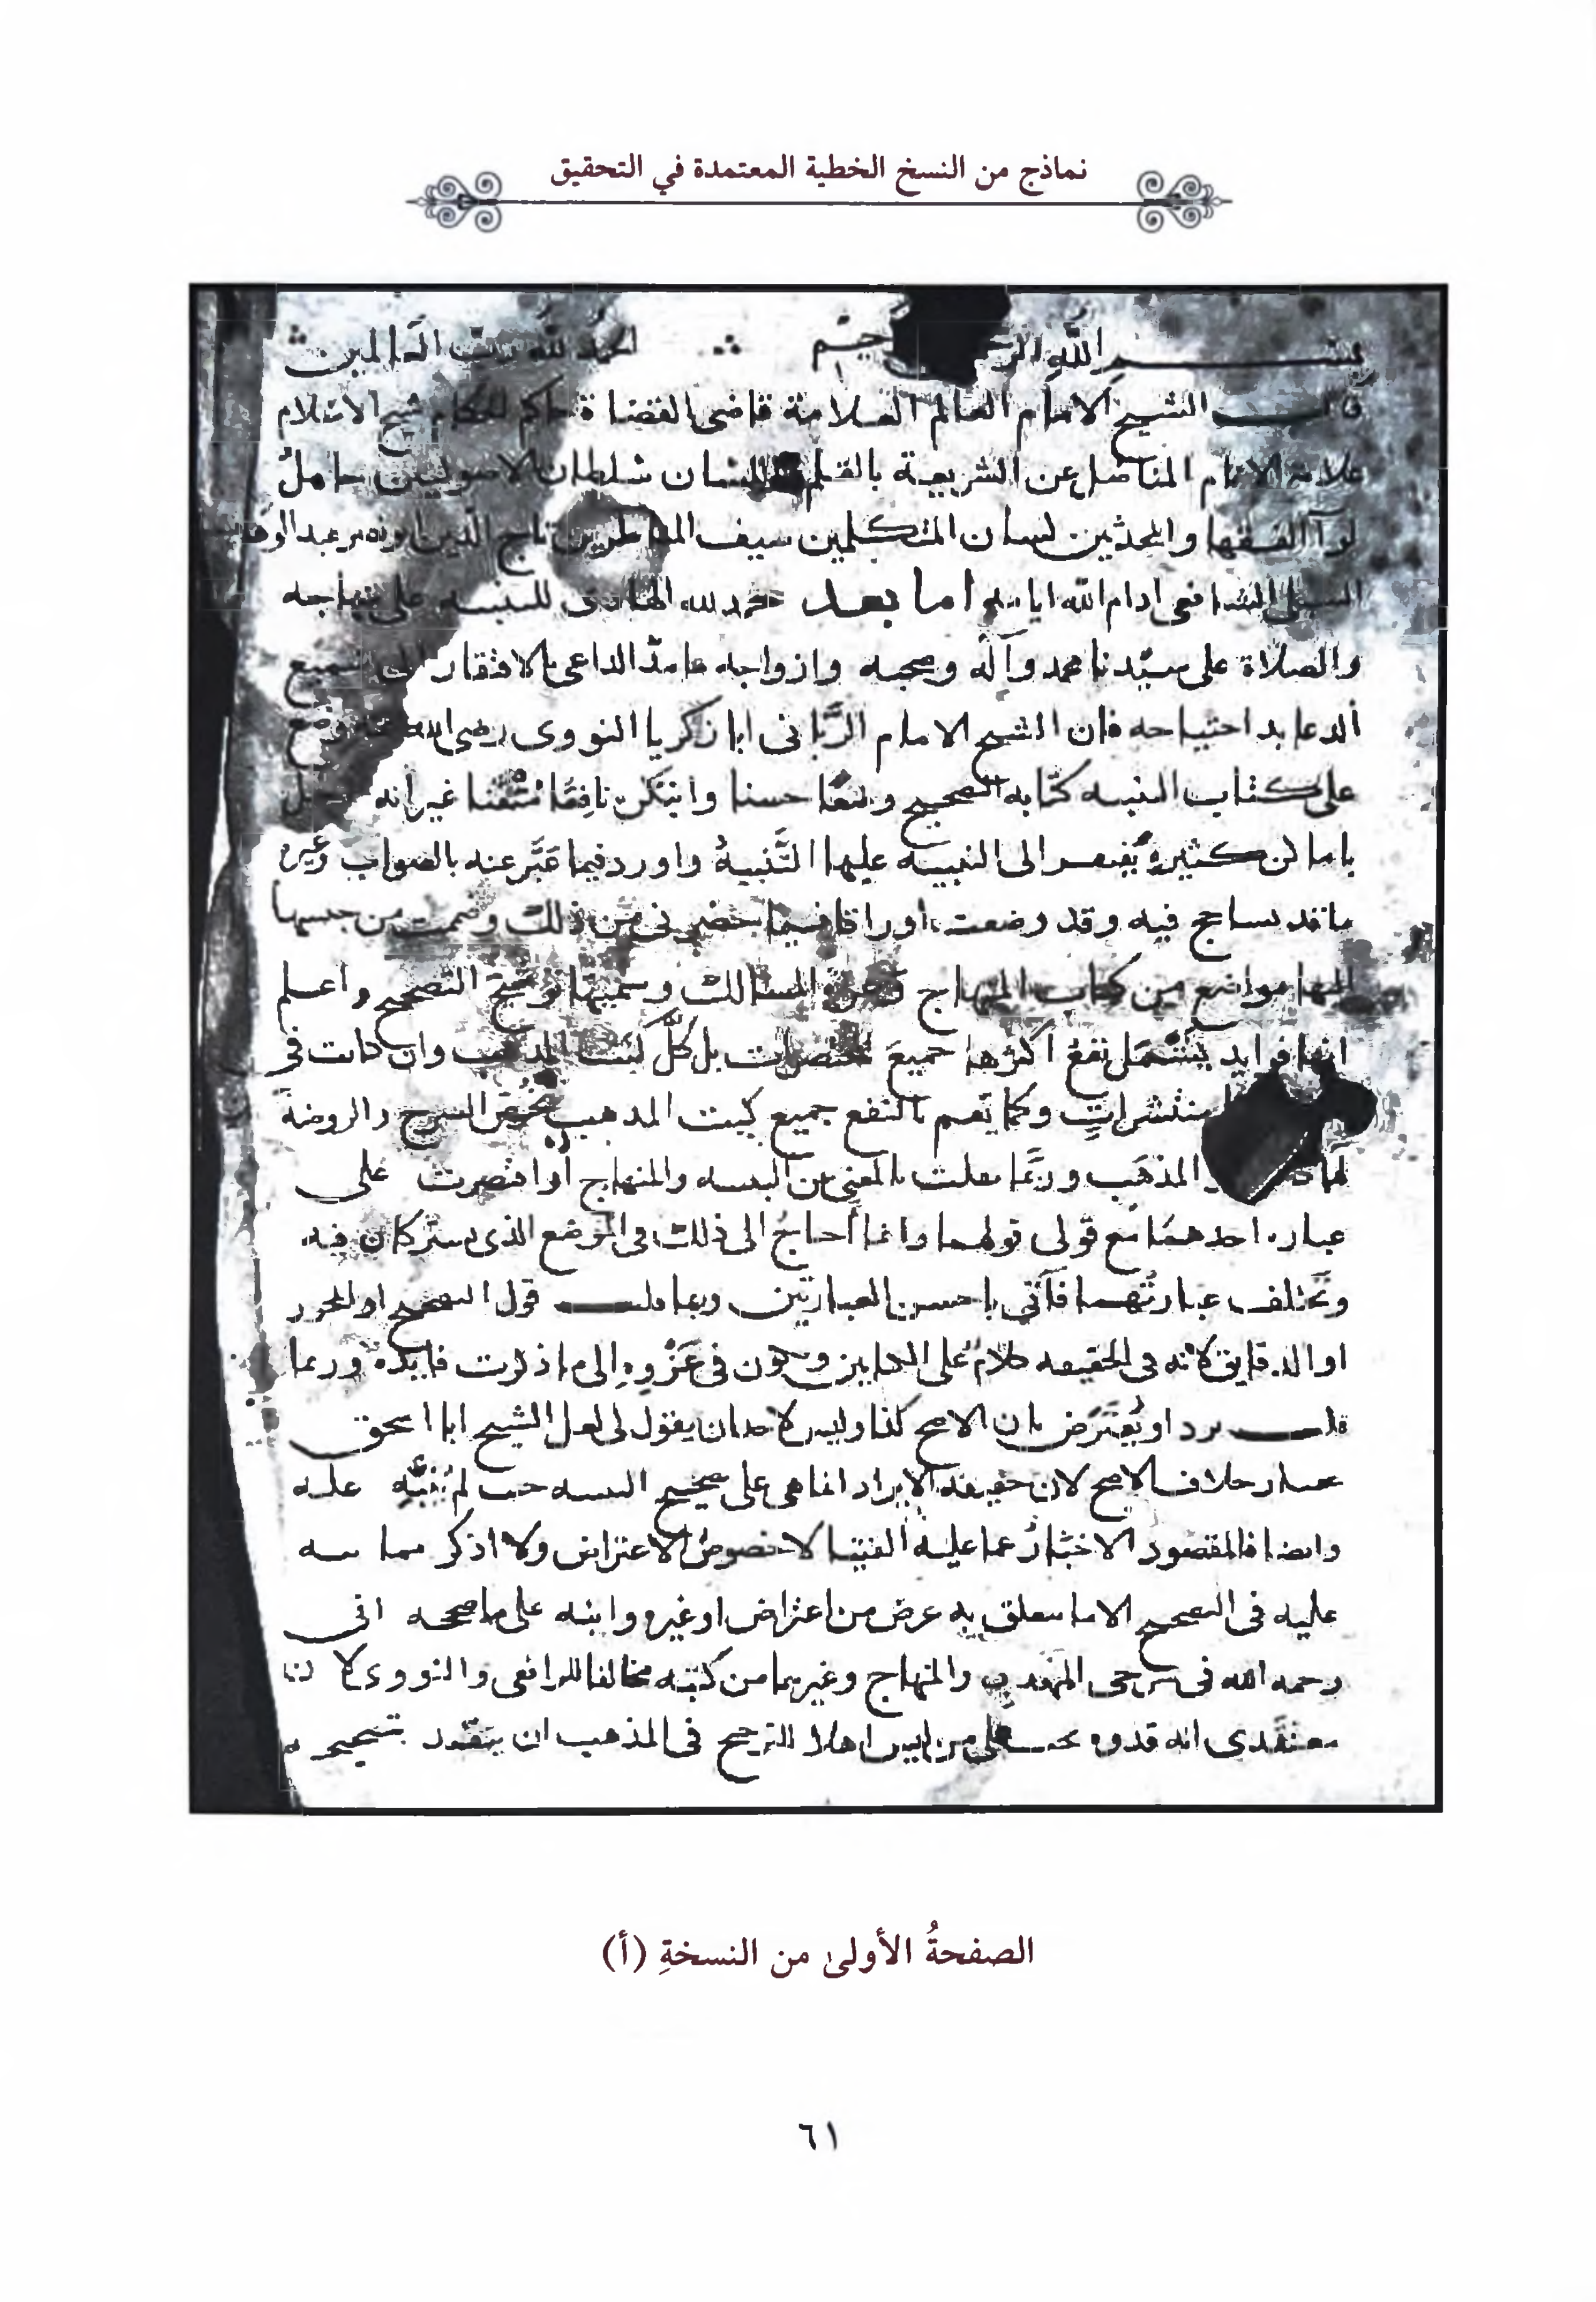 نماذج من النسخ الخطية المعتمدة في التحقيق
بسم الله الرحيم الحمد لله رب العالمين
قال الشيخ الامام العالم العلامة قاضى القضاة حاكم الحكام شيخ الاسلام
علامة الانام المناضل عن الشريعة بالقلم واللسان سلطان الاصوليين حامل
لوآ الفقها والمحدثين لسان المتكلمين سيف المناظرين تاج الدين ابو نصر عبد الوهاب
السبكى الشافعى ادام الله ايامه اما بعد حمد لله الهادى للتنبيه على منهاجه
والصلاة على سيدنا محمد وآله وصحبه وازواجه الداعى بالافتقار الى سميع
الدعا فان الشيخ الامام الربانى ابا زكريا النووى رضى الله عنه وضع
على كتاب التنبيه كتابه التصحيح وضعًا حسنا وابتكر نافِعًا مُتْقنا غير انه
باماكن كثيرة الى التنبيه عليها التَّنبيهُ واورد فيما عَبَّر عنه بالصواب وغيره
ما قد فيه وقد وضعت اوراقا فيما حضرنى من ذلك وضممت من جنسها
اليها مواضع من كتاب المنهاج المسالك وسميتها توشيح التصحيح واعلم
انها فوايد يَشْمَل نفعُ اكثرها جميعَ المختصرات بل كلَّ كتب المذهب وان كانت فى
منتشراتٍ وكما تعم بالنفع جميع كتب المذهب الشرح والروضة
المذهَب وربَّما نقلت بالمعنى من التنبيه والمنهاج او اقتصرت على
عبارة احدهما مع قولى قولهما وانما أحتاج الى ذلك فى الموضع الذى يشتركان فيه
وتختلف عبارتُهما فآتى باحسن العبارتين وربما قلت قول التصحيح او المحرر
او الدقايق لانه فى الحقيقه كلامٌ على الكتابين ويكون فى عَزْوِهِ الى ما ذكرت فايدة وربما
قلت يرد او يُعترَض بان الاصح كذا وليس لاحد ان يقول لى لعل الشيخ ابا اسحق
يختار خلاف الاصح لان حقيقة الايراد انما هى على تصحيح التنبيه حيث لم يُنَبِّه عليه
وايضا فالمقصود الاخبَارُ عما عليه الفتيا لا خصوصُ الاعتراض ولا اذكر مما نبه
عليه فى التصحيح الا ما يتعلق به غرض من اعتراض او غيره وانبه على ما صححه ابى
رحمه الله فى شرحى المهذب والمنهاج وغيرهما من كتبه مخالفا للرافعى والنووى لانا
معتقدى انه قدوه على من ليس اهلا للترجيح فى المذهب ان يتقيد بتصحيحه
الصفحةُ الأولىٰ من النسخةِ (أ)
٦١